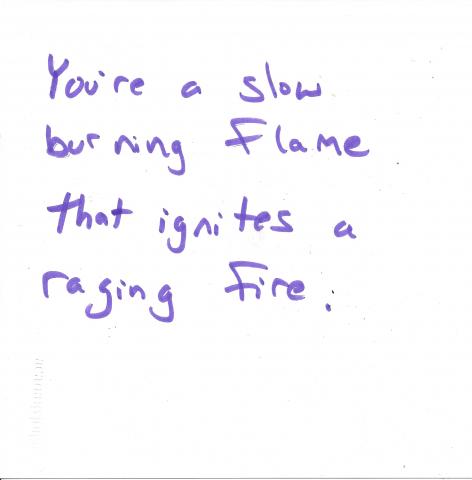 You're a slow
burning flame
that ignites a
raging fire.